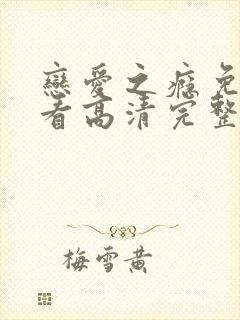 戀愛之癮免
看高清完整
梅雪黄